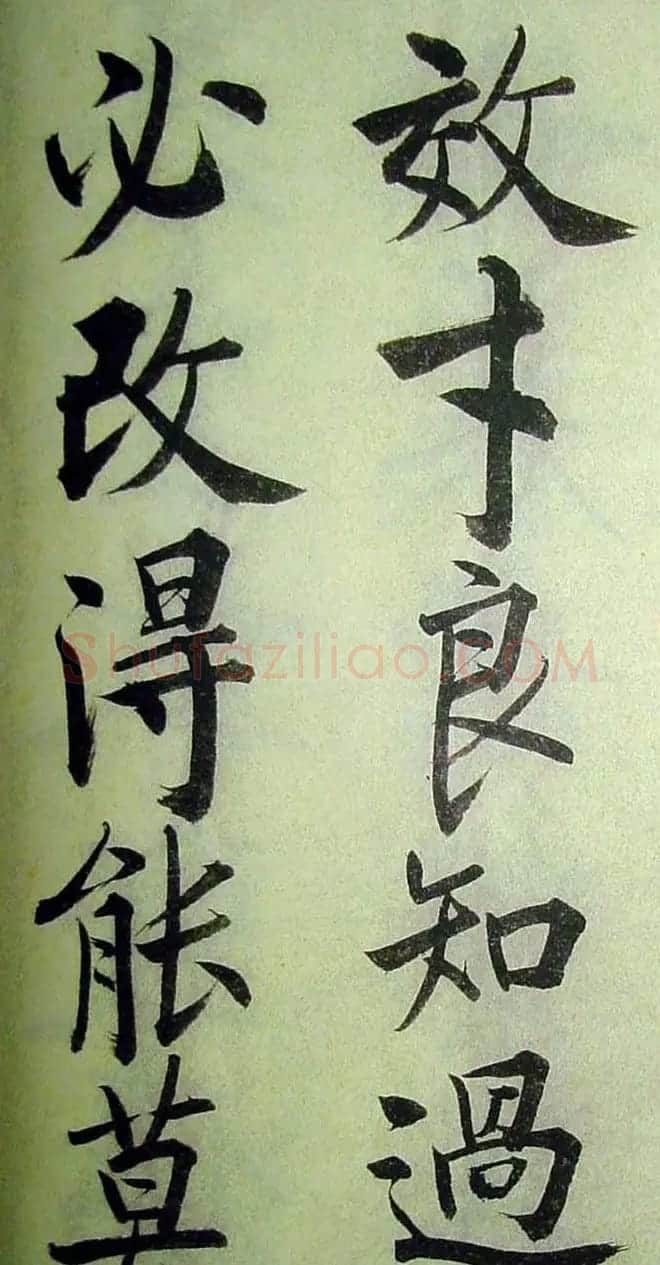 效才良知過
必改得能莫
Shufaziliao.COM